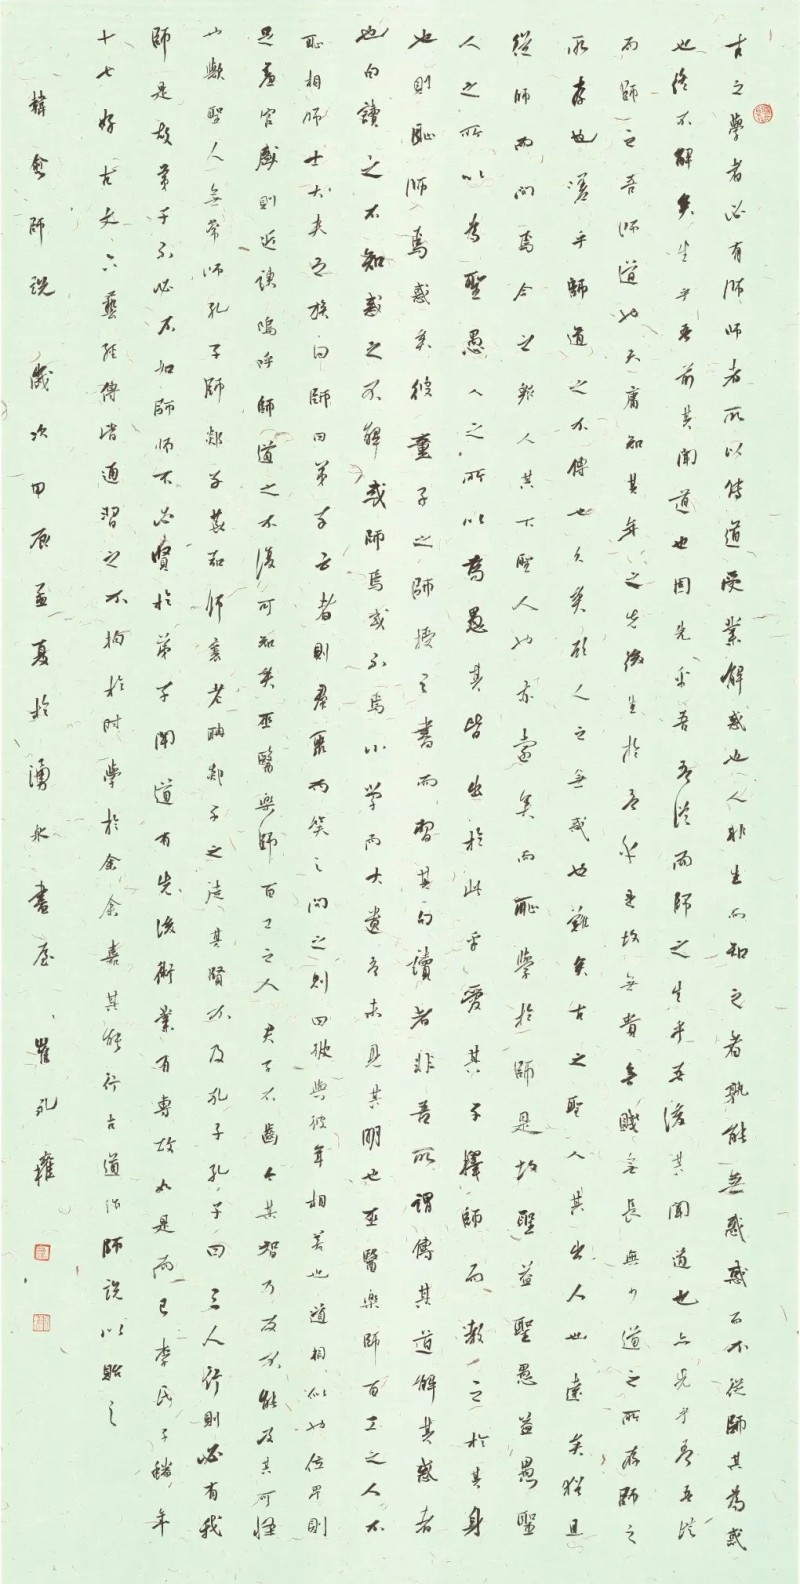 古之學者必有師師者所以傳道受業解惑也人非生而知之者孰能無惑惑而不從師其為惑
也終不解矣生乎吾前其聞道也固先乎吾吾從而師之生乎吾後其聞道也亦先乎吾吾從
而師之吾師道也夫庸知其年之先後生於吾乎是故無貴無賤無長無少道之所存師之
所存也嗟乎師道之不傳也久矣欲人之無惑也難矣古之聖人其出人也遠矣猶且
從師而問焉今之眾人其下聖人也亦遠矣而恥學於師是故聖益聖愚益愚聖
人之所以為聖愚人之所以為愚其皆出於此乎愛其子擇師而教之於其身
也則恥師焉惑矣彼童子之師授之書而習其句讀者非吾所謂傳其道解其惑者
也句讀之不知惑之不解或師焉或不焉小學而大遺吾未見其明也巫醫樂師百工之人不
恥相師士大夫之族曰師曰弟子云者則群聚而笑之問之則曰彼與彼年相若也道相似也位卑則
足羞官盛則近諛嗚呼師道之不復可知矣巫醫樂師百工之人君子不齒今其智乃反不能及其可怪
也歟聖人無常師孔子師郯子萇弘師襄老聃郯子之徒其賢不及孔子孔子曰三人行則必有我
師是故弟子不必不如師師不必賢於弟子聞道有先後術業有專攻如是而已李氏子蟠年
十七好古文六藝經傳皆通習之不拘於時學於余余嘉其能行古道作師說以貽之
韓愈師說 歲次甲辰孟夏於湧書屋 崔孔雍